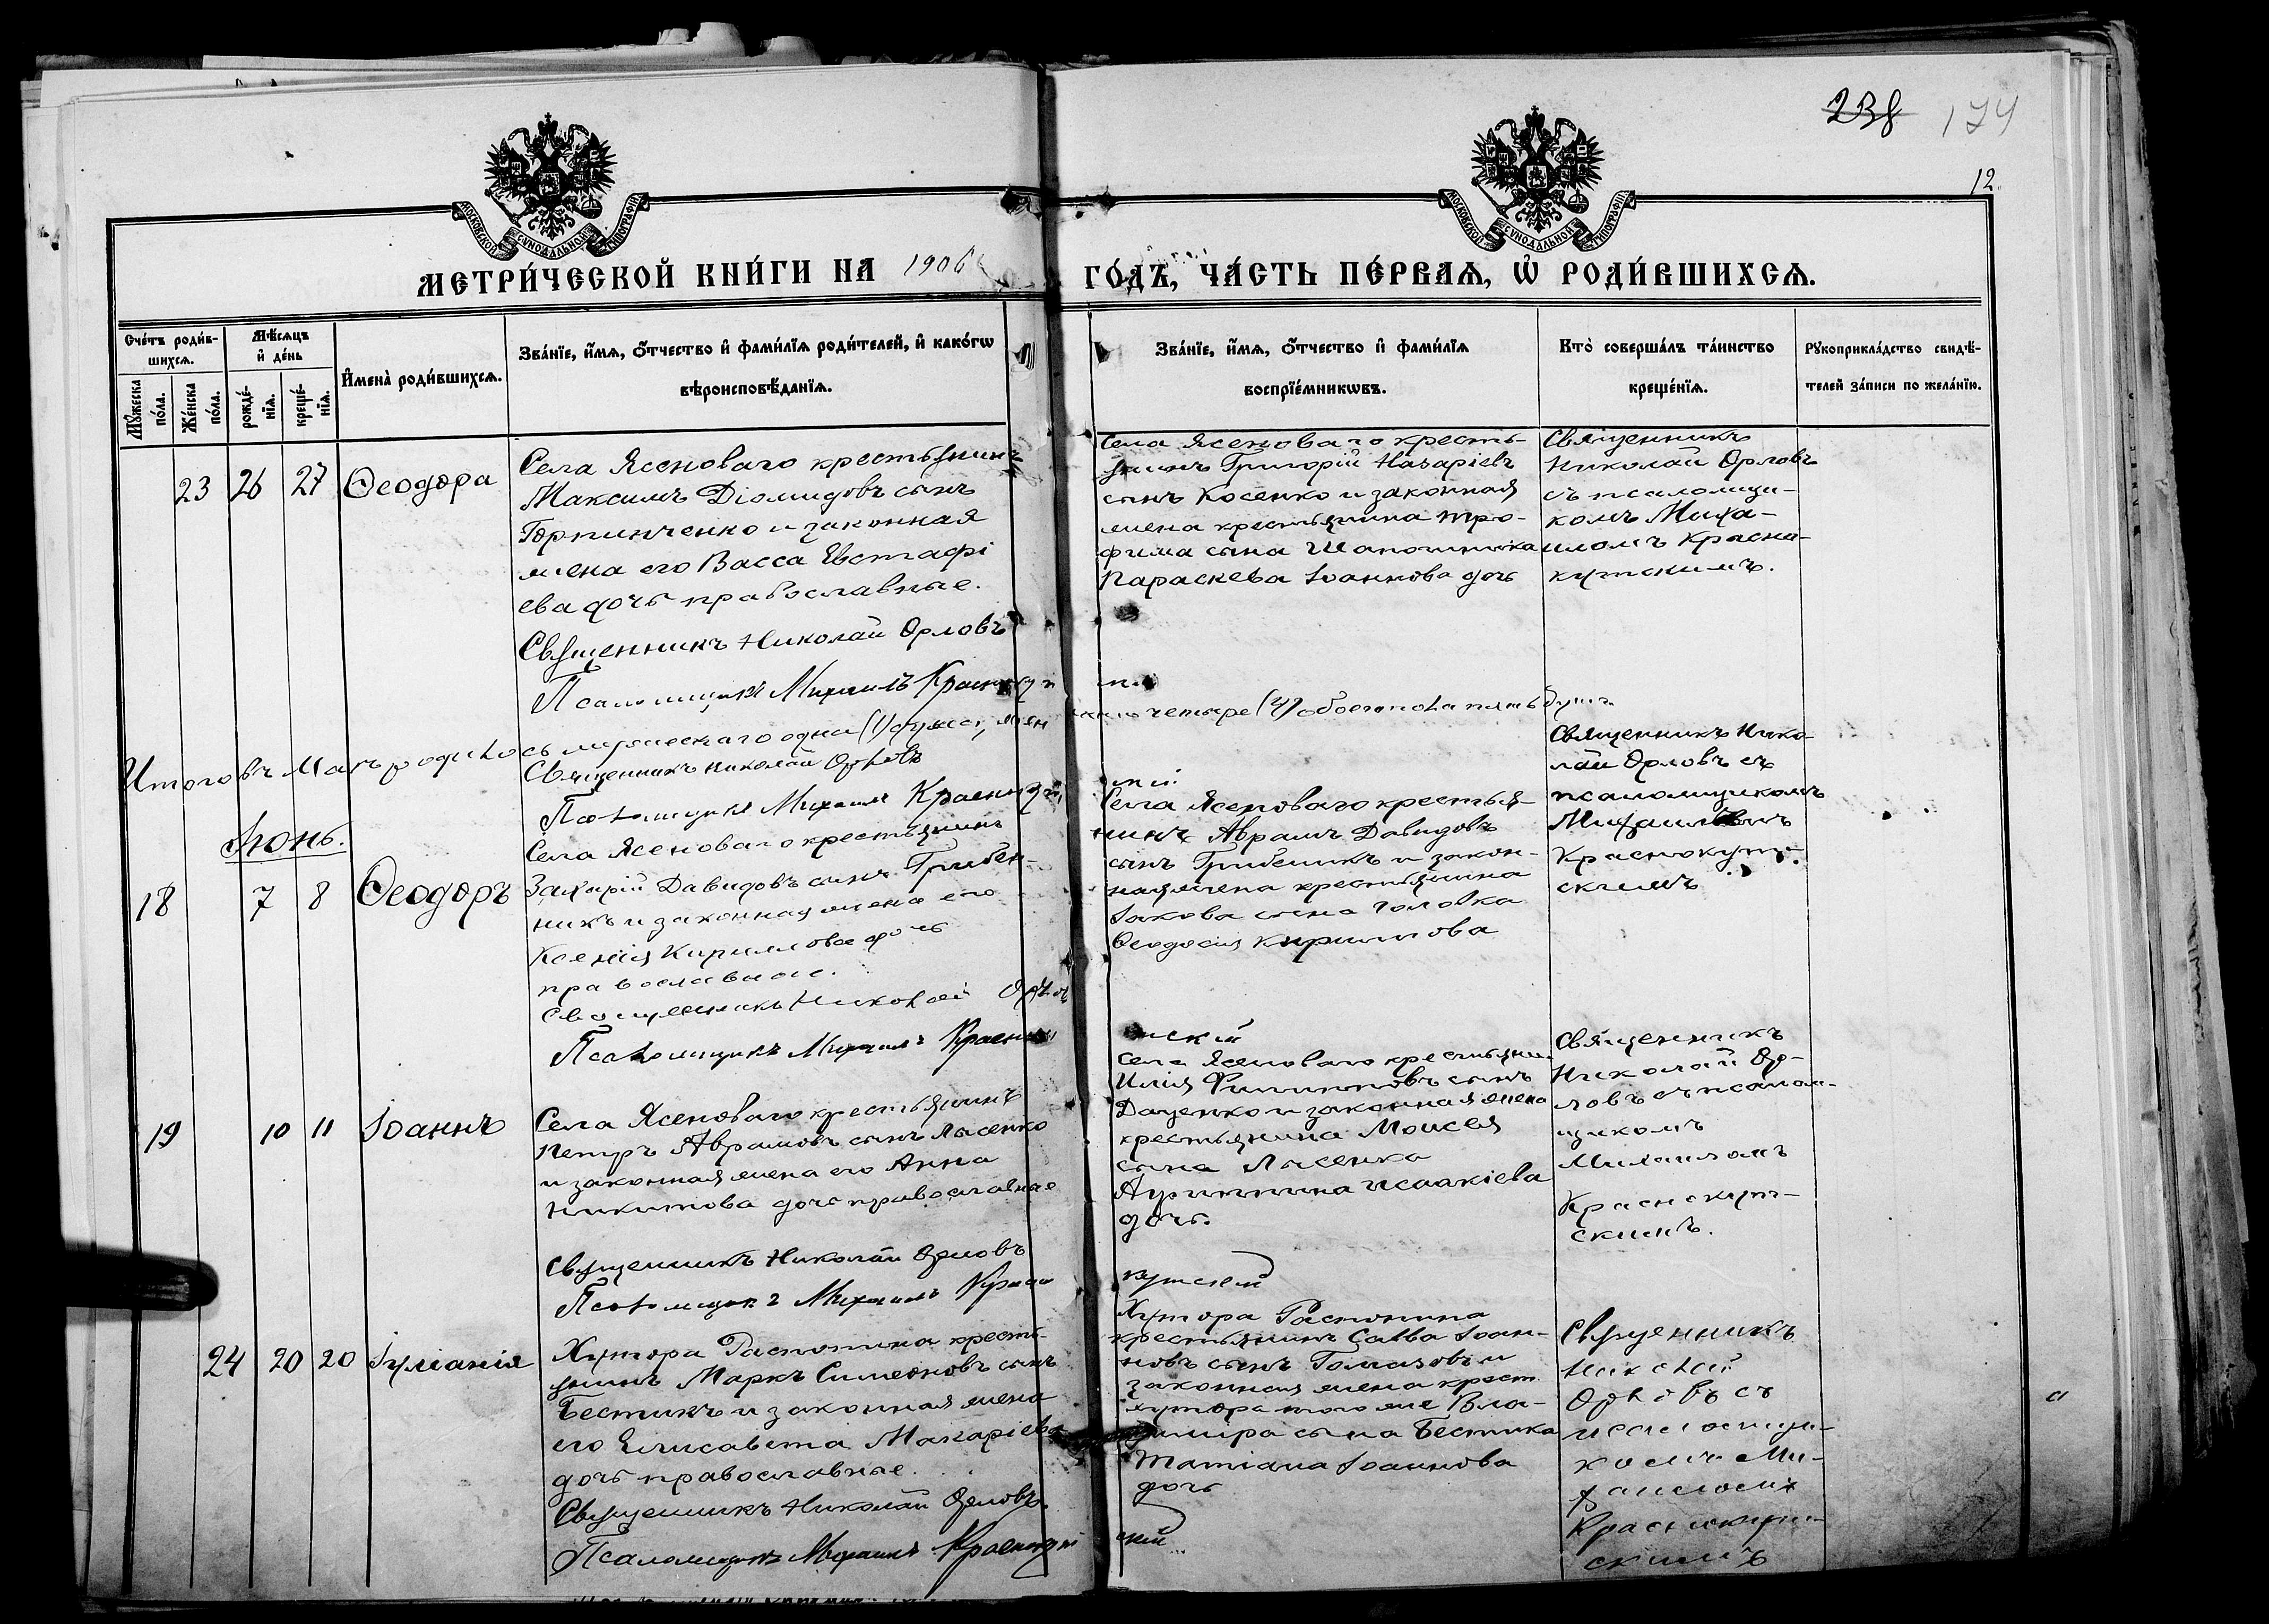 238 174
12
МОСКОВСКОЙ СѴНОДАЛЬНОЙ ТИПОГРАФІИ
МОСКОВСКОЙ СѴНОДАЛЬНОЙ ТИПОГРАФІИ
МЕТРИ́ЧЕСКОЙ КНИ́ГИ НА 1906 ГО́ДЪ, ЧА́СТЬ ПЕ́РВАѦ, Ѡ РОДИ́ВШИХСѦ.
Сче́тъ роди́в-
шихсѧ.
Мꙋ́жеска
по́ла.
Же́нска
по́ла.
Мѣ́сѧцъ
и҆ де́нь
рожде́-
нїѧ.
креще́-
нїѧ.
И҆мена̀ роди́вшихсѧ.
Зва́нїе, и҆́мѧ, ѻ҆́тчество и҆ фами́лїѧ роди́телей, и҆ како́гѡ
вѣроисповѣ́данїѧ.
Зва́нїе, и҆́мѧ, ѻ҆́тчество и҆ фами́лїѧ
воспрїе́мникѡвъ.
Кто̀ соверша́лъ та́инство
креще́нїѧ.
Рꙋкоприкла́дство свидѣ́-
телей за́писи по жела́нїю.
23 26 27 Ѳеодора
Села Ясеноваго крестьянинъ
Максимъ Діомидовъ сынъ
Горпинченко и законная
жена его Васса Евстафі
ева дочь православные.
Священникъ Николай Орловъ
Псаломщикъ Михаилъ Краснокут
Села Ясеноваго кресть-
янинъ Григорій Назаріевъ
сынъ Косенко и законная
жена крестьянина Тро-
фима сына Шапошника
Параскева Іоаннова дочь
Священникъ
Николай Орловъ
съ псаломщи-
комъ Миха-
иломъ Красно-
кутскимъ.
Итого въ Маѣ родилось мужескаго одна (1) душа, жен четыре (4) обоего пола пять душъ
Священникъ Николай Орловъ
Псаломщикъ Михаилъ Краснокут
Іюнь.
18 7 8 Ѳеодоръ
Села Ясеноваго крестьянинъ
Захарій Давидовъ сынъ Грибен-
никъ и законная жена его
Ксенія Кириллова дочь
православные.
Священникъ Николай Орлов
Псаломщикъ Михаилъ Красноку
Села Ясеноваго крестья-
нинъ Аврамъ Давидовъ
сынъ Грибеникъ и закон-
ная жена крестьянина
Іакова сына Головка
Ѳеодосія Кириллова
Священникъ Нико-
лай Орловъ съ
псаломщикомъ
Михаиломъ
Краснокут-
скимъ
19 10 11 Іоаннъ
Села Ясеноваго крестьянинъ
Петръ Аврамовъ сынъ Лысенко
и законная жена его Анна
Никитова дочь православные
Священникъ Николай Орловъ
Псаломщикъ Михаилъ Красно
нский
Села Ясеноваго крестьянин
Илія Филипповъ сынъ
Даценко и законная жена
крестьянина Моисея
сына Лысенка
Агриппина Исаакіева
дочь.
Священникъ
Николай Ор-
ловъ съ псалом-
щикомъ
Михаиломъ
Краснокут-
скимъ.
24 20 20 Іуліанія
Хутора Распопина кресть-
янинъ Маркъ Симеоновъ сынъ
Бестикъ и законная жена
его Елисавета Макаріева
дочь православные.
Священникъ Николай Орловъ.
Псаломщикъ Михаилъ Краснокут
кутский
Хутора Распопина
крестьянинъ Савва Іоан-
новъ сынъ Томазовъ и
законная жена крест.
хутора того же Вла-
диміра сына Бестика
Татіана Іоаннова
дочь
ский
Священникъ
Николай
Орловъ съ
псаломщи-
комъ Ми-
хаиломъ
Краснокут-
скимъ